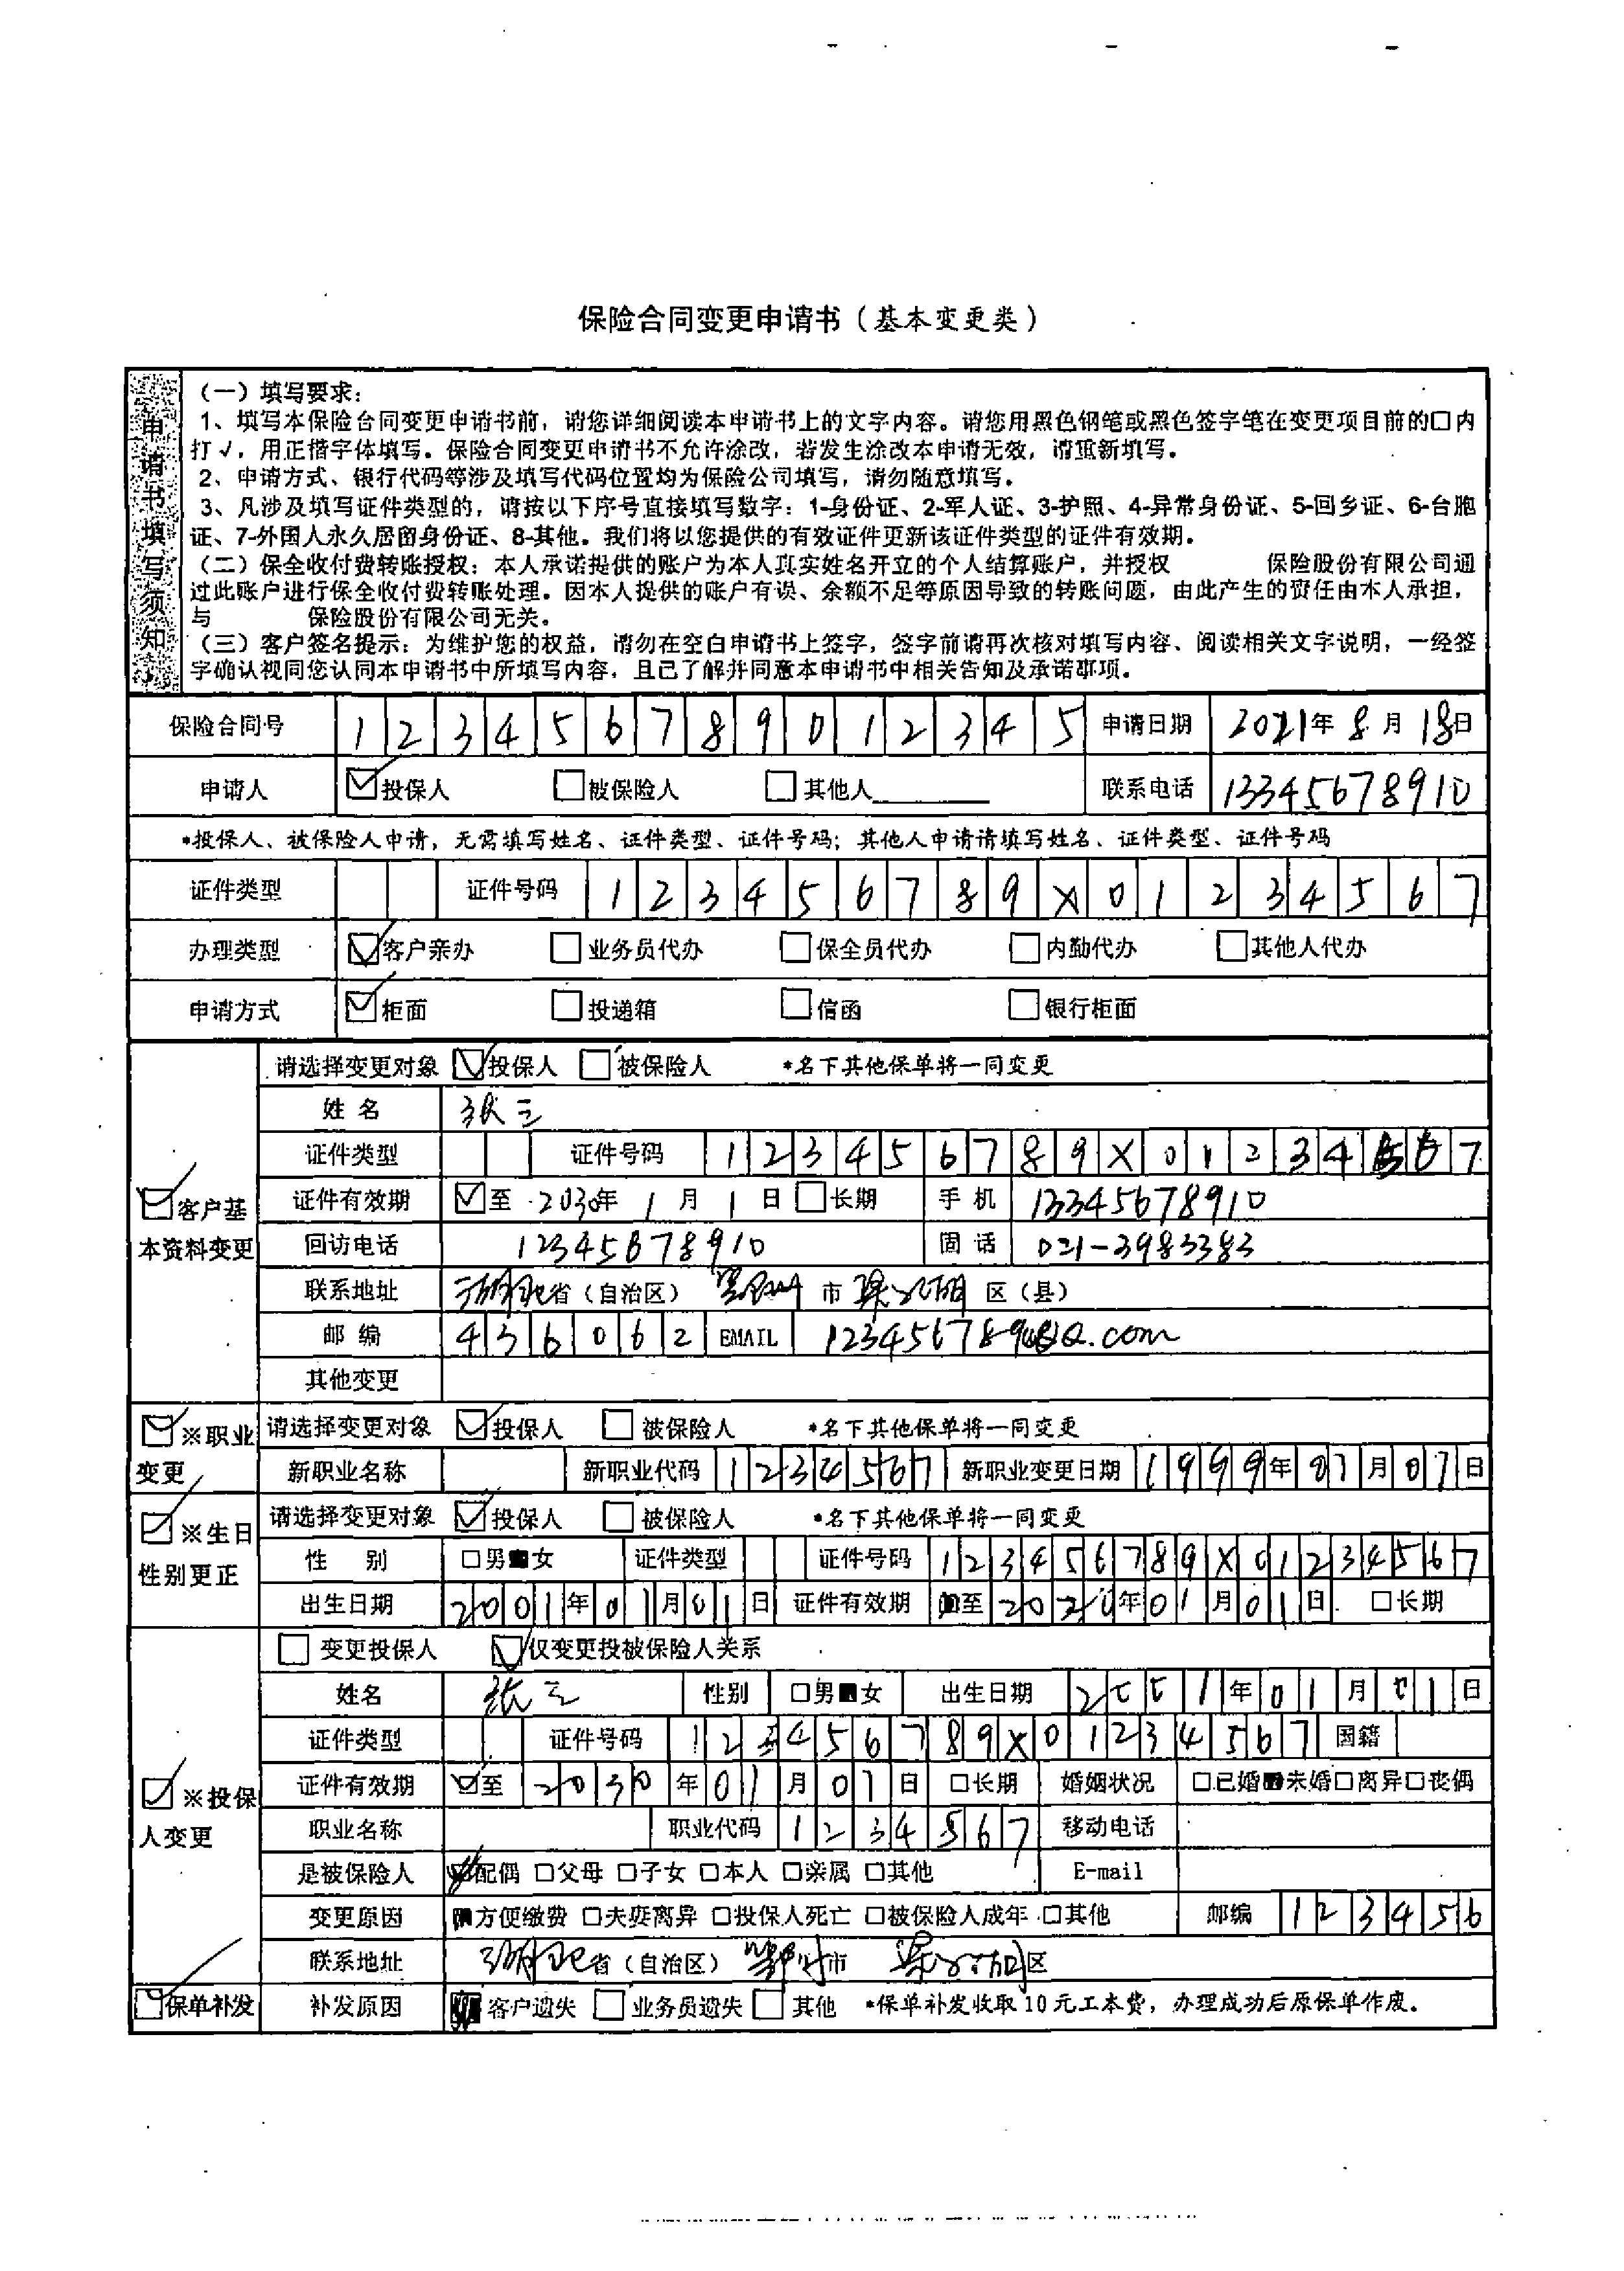 保险合同变更申请书（基本变更类）
申请书填写须知
（一）填写要求：
1、填写本保险合同变更申请书前，请您详细阅读本申请书上的文字内容。请您用黑色钢笔或黑色签字笔在变更项目前的口内
打√，用正楷字体填写。保险合同变更申请书不允许涂改，若发生涂改本申请无效，请重新填写。
2、申请方式、银行代码等涉及填写代码位置均为保险公司填写，请勿随意填写。
3、凡涉及填写证件类型的，请按以下序号直接填写数字：1-身份证、2-军人证、3-护照、4-异常身份证、5-回乡证、6-台胞
证、7-外国人永久居留身份证、8-其他。我们将以您提供的有效证件更新该证件类型的证件有效期。
（二）保全收付费转账授权：本人承诺提供的账户为本人真实姓名开立的个人结算账户，并授权 保险股份有限公司通
过此账户进行保全收付费转账处理。因本人提供的账户有误、余额不足等原因导致的转账问题，由此产生的责任由本人承担，
与 保险股份有限公司无关。
（三）客户签名提示：为维护您的权益，请勿在空白申请书上签字，签字前请再次核对填写内容、阅读相关文字说明，一经签
字确认视同您认同本申请书中所填写内容，且已了解并同意本申请书中相关告知及承诺事项。
保险合同号 123456789012345 申请日期 2021年8月18日
申请人 ☑投保人 □被保险人 □其他人 联系电话 13345678910
*投保人、被保险人申请，无需填写姓名、证件类型、证件号码；其他人申请请填写姓名、证件类型、证件号码
证件类型 证件号码 123456789X01234567
办理类型 ☑客户亲办 □业务员代办 □保全员代办 □内勤代办 □其他人代办
申请方式 ☑柜面 □投递箱 □信函 □银行柜面
☑客户基本资料变更
请选择变更对象 ☑投保人 □被保险人 *名下其他保单将一同变更
姓名 张三
证件类型 证件号码 123456789X01234567
证件有效期 ☑至 2030年1月1日 □长期 手机 13345678910
回访电话 12345678910 固话 021-3983383
联系地址 湖北省（自治区） 鄂州市 梁子湖区（县）
邮编 436062 EMAIL
其他变更
☑※职业变更
请选择变更对象 ☑投保人 □被保险人 *名下其他保单将一同变更
新职业名称 新职业代码 1234567 新职业变更日期 1999年07月07日
☑※生日性别更正
请选择变更对象 ☑投保人 □被保险人 *名下其他保单将一同变更
性别 □男■女 证件类型 证件号码 123456789X01234567
出生日期 2001年01月01日 证件有效期 ■至 年01月01日 □长期
☑※投保人变更
□变更投保人 ☑仅变更投被保险人关系
姓名 张三 性别 □男■女 出生日期 2001年01月01日
证件类型 证件号码 123456789X01234567 国籍
证件有效期 ☑至 2030年01月01日 □长期 婚姻状况 □已婚■未婚□离异□丧偶
职业名称 职业代码 1234567 移动电话
是被保险人 ☑配偶 □父母 □子女 □本人 □亲属 □其他 E-mail
变更原因 ■方便缴费 □夫妻离异 □投保人死亡 □被保险人成年 □其他 邮编 123456
联系地址 湖北省（自治区） 鄂州市 梁子湖区
☑保单补发 补发原因 ■客户遗失 □业务员遗失 □其他 *保单补发收取10元工本费，办理成功后原保单作废。